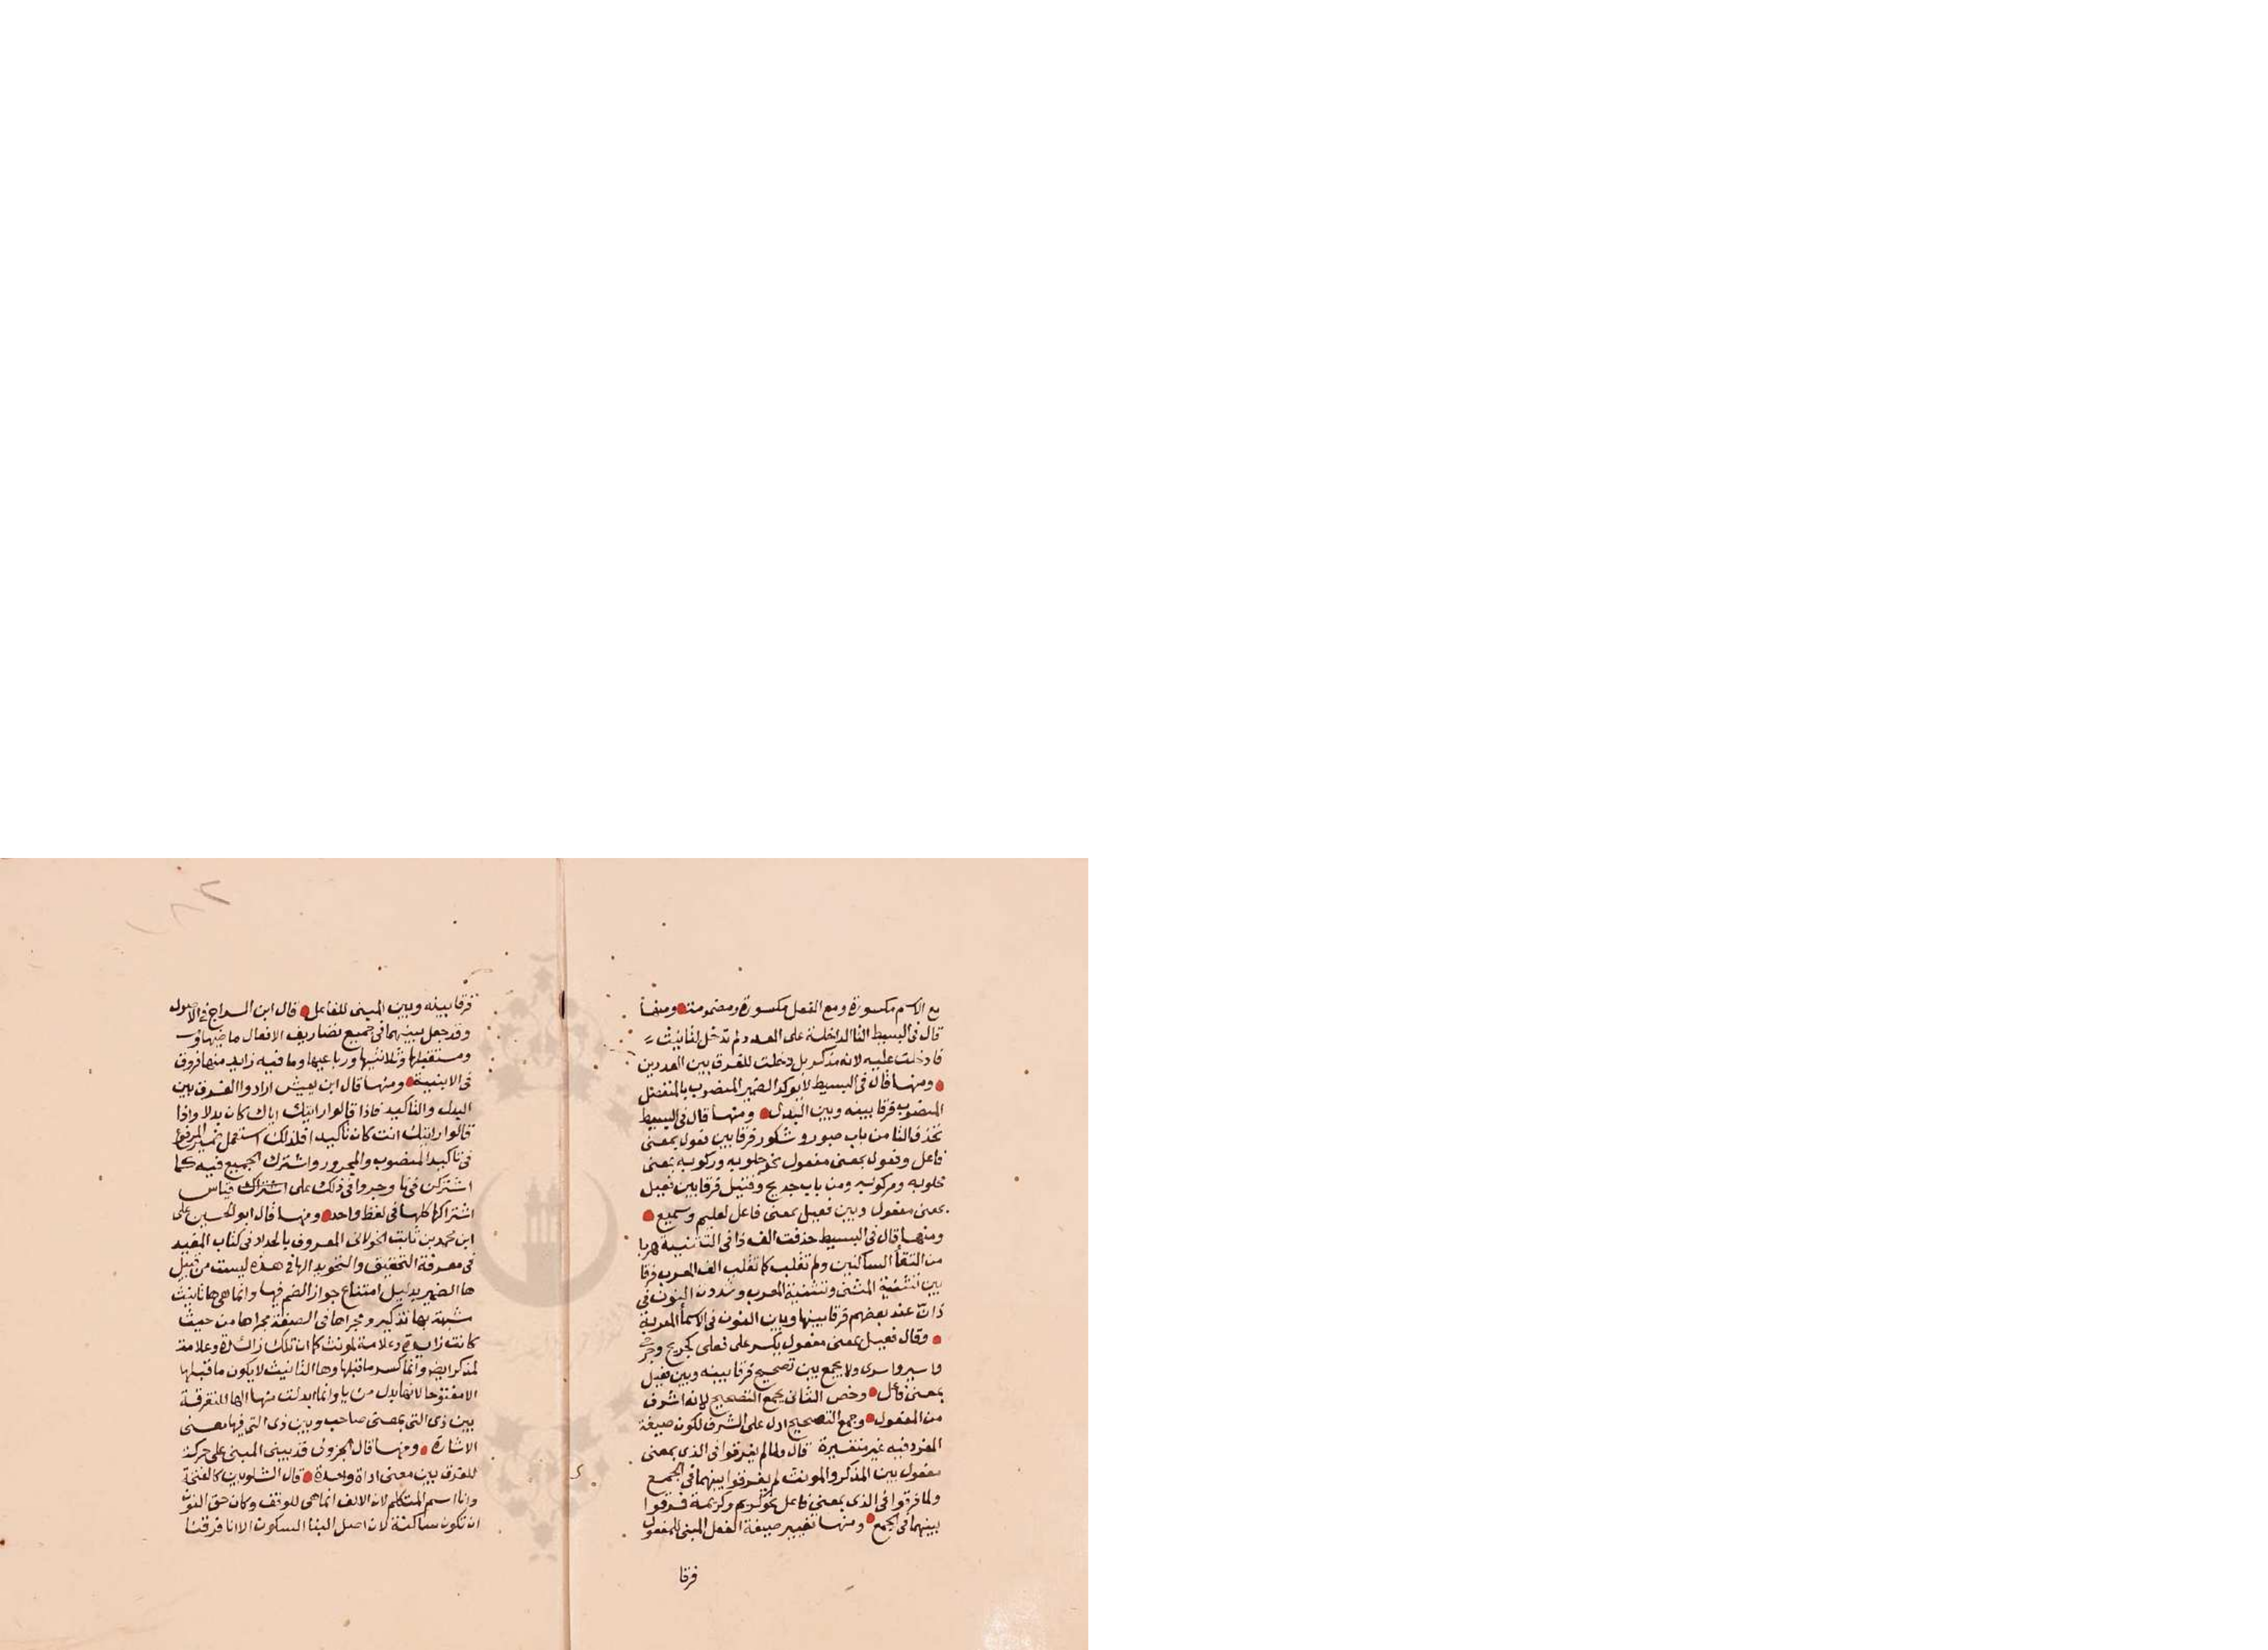 مع الاسم مكسورة ومع الفعل مكسورة ومضمومة ومنها
قال فى البسيط التا الداخلة على العدد لم تدخل لتانيث
فادخلت عليه لانه مذكر بل دخلت للفرق بين العددين
ومنها قال فى البسيط لا يوكد الضمير المنصوب بالمنفصل
المنصوب فرقا بينه وبين البدل ومنها قال فى البسيط
تحذف التا من باب صبور وشكور فرقا بين فعول بمعنى
فاعل وفعول بمعنى مفعول نحو حلوبه وركوبه بمعنى
حلوبه ومركوبه ومن باب جريح وقتيل فرقا بين فعيل
بمعنى مفعول وبين فعيل بمعنى فاعل لعليم وسميع
ومنها قال فى البسيط حذفت الف ذا فى التثنية هربا
من التقا الساكنين ولم تقلب كما تقلب الف المعرب فرقا
بين تثنية المثنى وتثنية المعرب وشددت النون فى
ذان عند بعضهم فرقا بينها وبين النون فى الاسما المعربة
وقال فعيل بمعنى مفعول يكسر على فعلى كجريح وجرحى
واسير واسرى ولا يجمع بين تصحيح فرقا بينه وبين فعيل
بمعنى فاعل وخص الثانى بجمع التصحيح لانه اشرف
من المفعول وجمع التصحيح ادل على الشرف لكون صيغة
المفرد فيه غير متغيرة قال ولما لم يفرقوا فى الذى بمعنى
مفعول بين المذكر والمونث لم يفرقوا بينهما فى الجمع
ولما فرقوا فى الذى بمعنى فاعل نحو كريم وكريمة فرقوا
بينهما فى الجمع ومنها تغيير صيغة الفعل المبنى للمفعول
فرقا
فرقا بينه وبين المبنى للفاعل قال ابن السراج فى الاصول
وقد جعل بينهما فى جميع تصاريف الافعال ماضيها
ومستقبلها وثلاثيها ورباعيها وما فيه زايد منها فروق
فى الابنية ومنها قال ابن يعيش ارادوا الفرق بين
البدل والتاكيد فاذا قالوا رايتك اياك كان بدلا واذا
قالوا رايتك انت كان تاكيدا فلذلك استعمل ضمير المرفوع
فى تاكيد المنصوب والمجرور واشترك الجميع فيه كما
اشتركن فى نا وجروا فى ذلك على اشتراك قياس
اشتراكها كلها فى لفظ واحد ومنها قال ابو الحسين على
ابن محمد بن ثابت الخولانى المعروف بالحداد فى كتاب المفيد
فى معرفة التحقيق والتجويد الها فى هذه ليست من قبيل
ها الضمير بدليل امتناع جواز الضم فيها وانما هى ها تانيث
شبهت بها تذكير ومجراها فى الصفة مجراها من حيث
كانت زايدة وعلامة لمونث كما ان تلك زائدة وعلامة
لمذكر ايض وانما كسر ما قبلها وها التانيث لا يكون ما قبلها
الا مفتوحا لانها بدل من يا وانما ابدلت منها الها للتفرقة
بين ذى التى بمعنى صاحب وبين ذى التى فيها معنى
الاشارة ومنها قال الجزولى قد يبنى المبنى على حركة
للفرق بين معنى اداة واحدة قال الشلوبين كالفتحة
وانا اسم المتكلم لان الالف انما هى للوقف وكان حق النون
ان تكون ساكنة لان اصل البنا السكون الا انا فرقنا